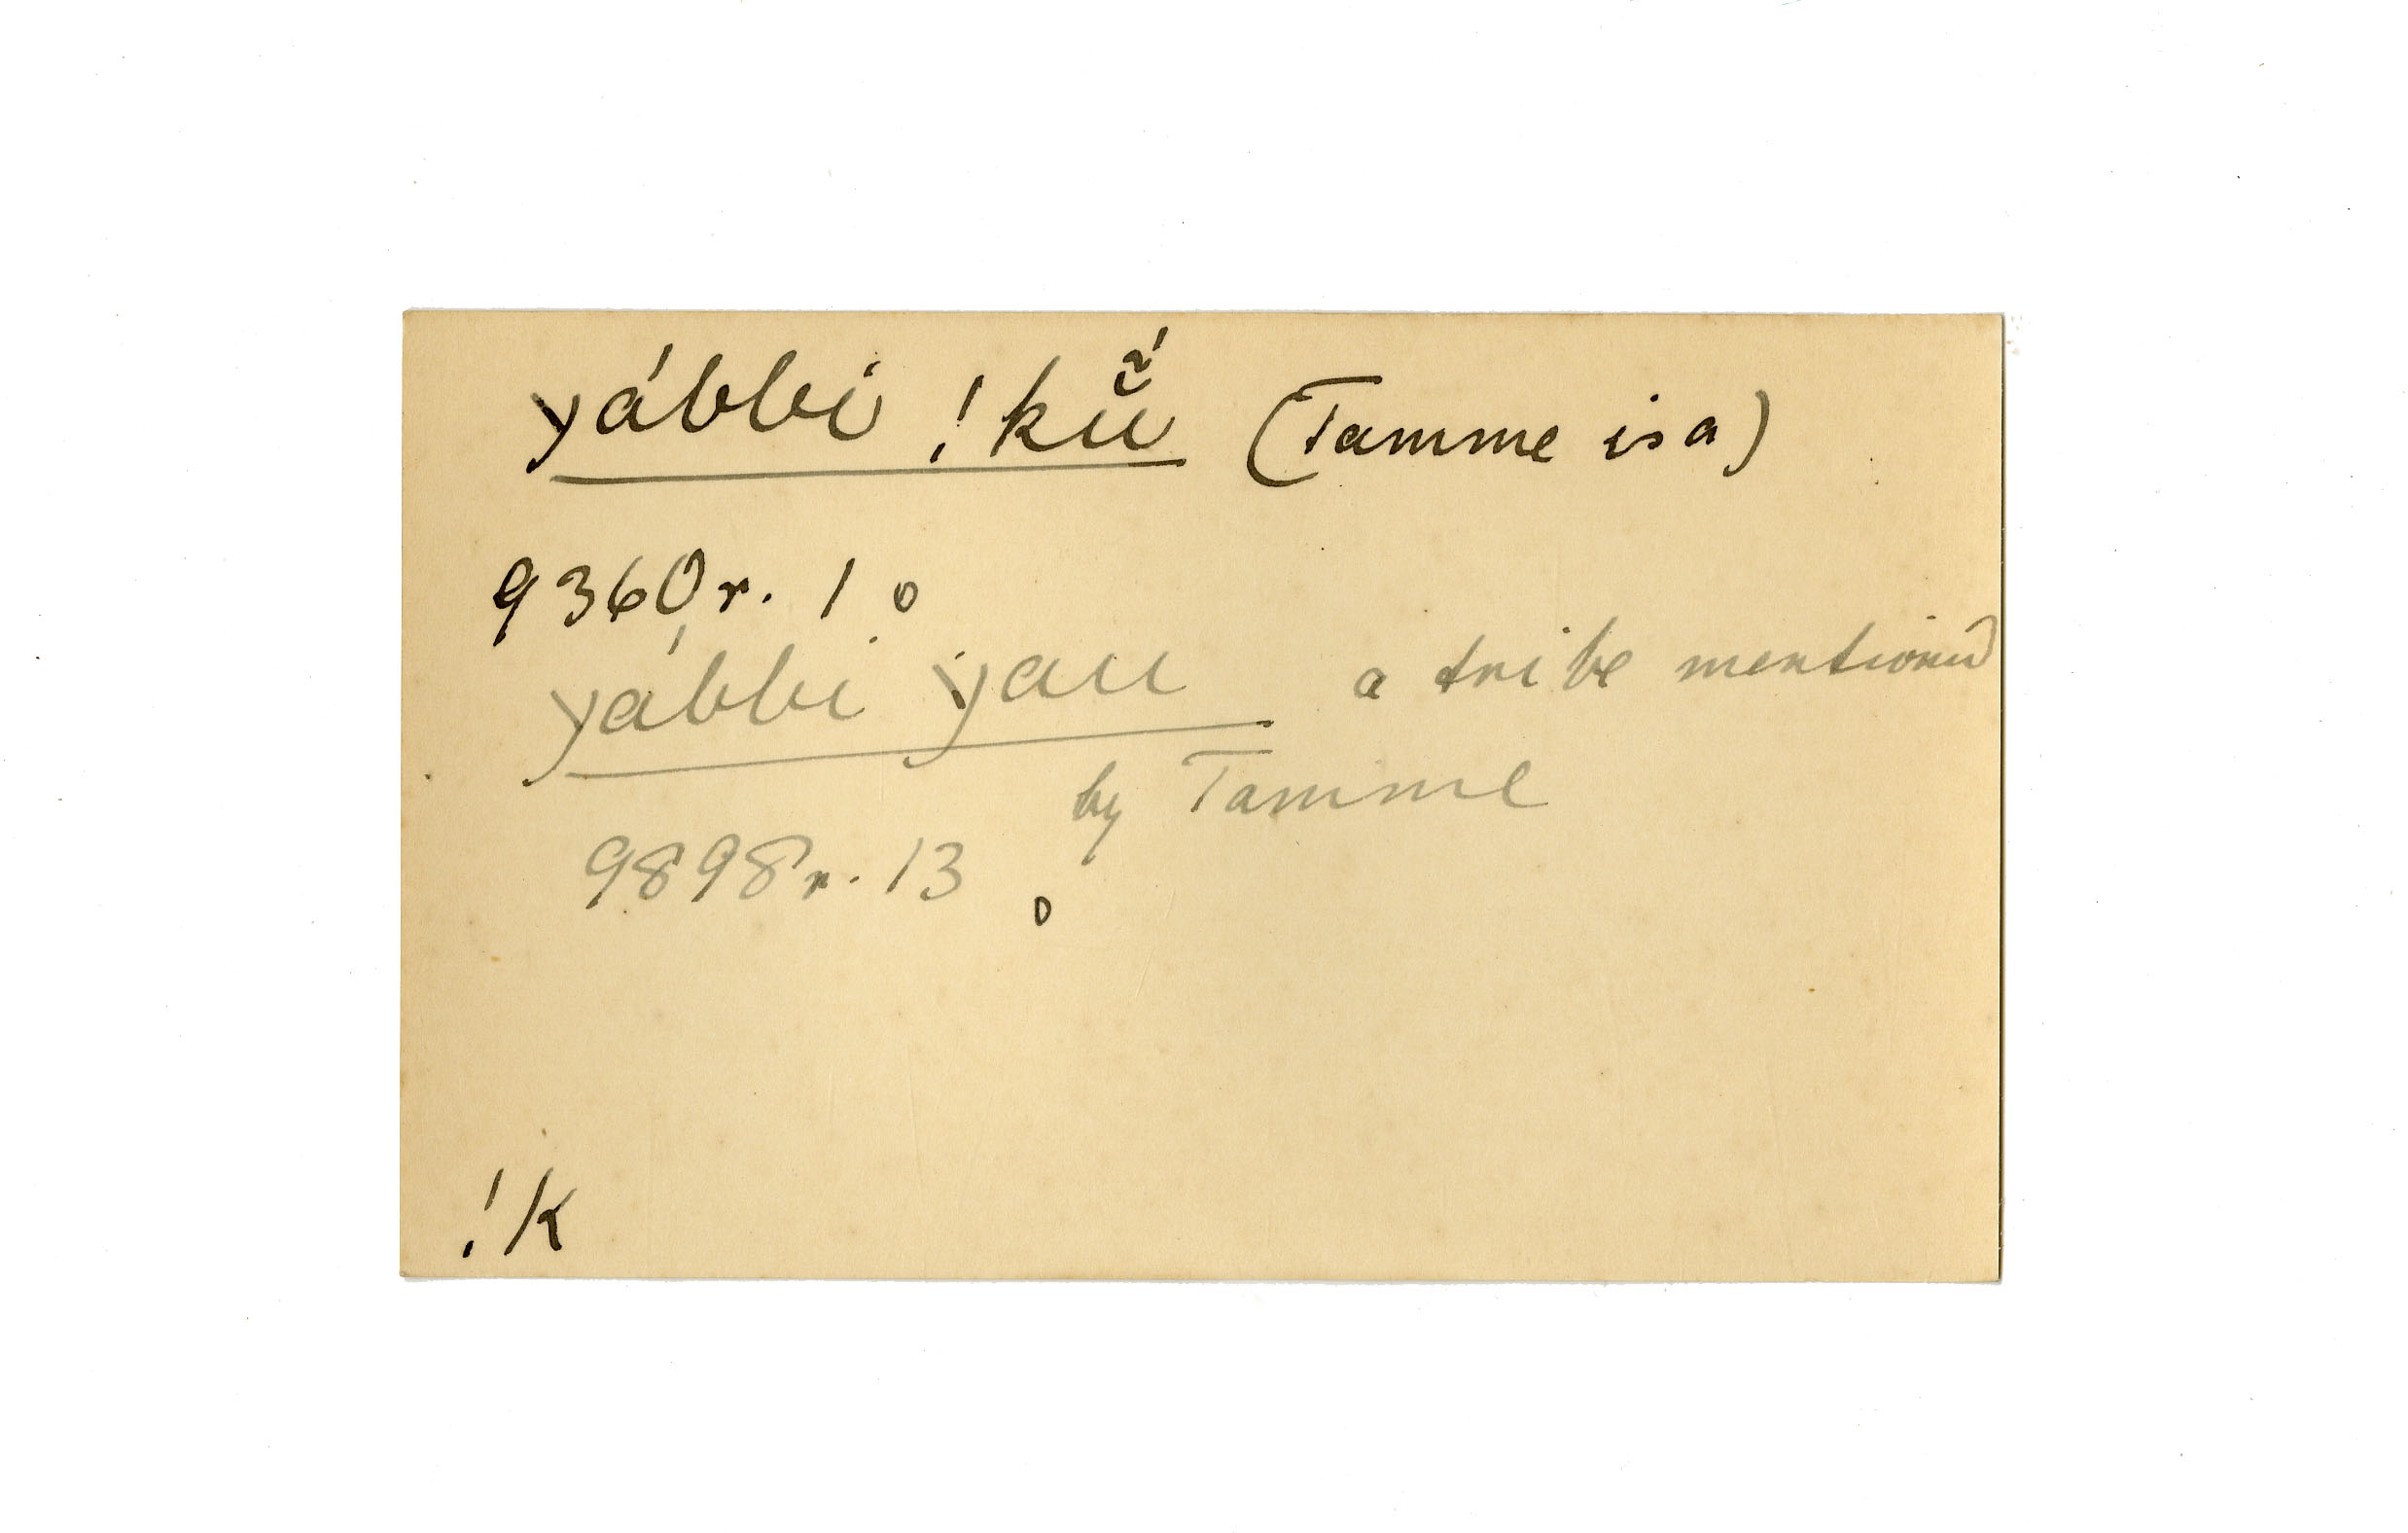 yábbi !kü̃́ (Tamme is a)
9360 r. 1 o
yábbi yau a tribe mentioned
by Tamme
9898 r. 13 o
!k